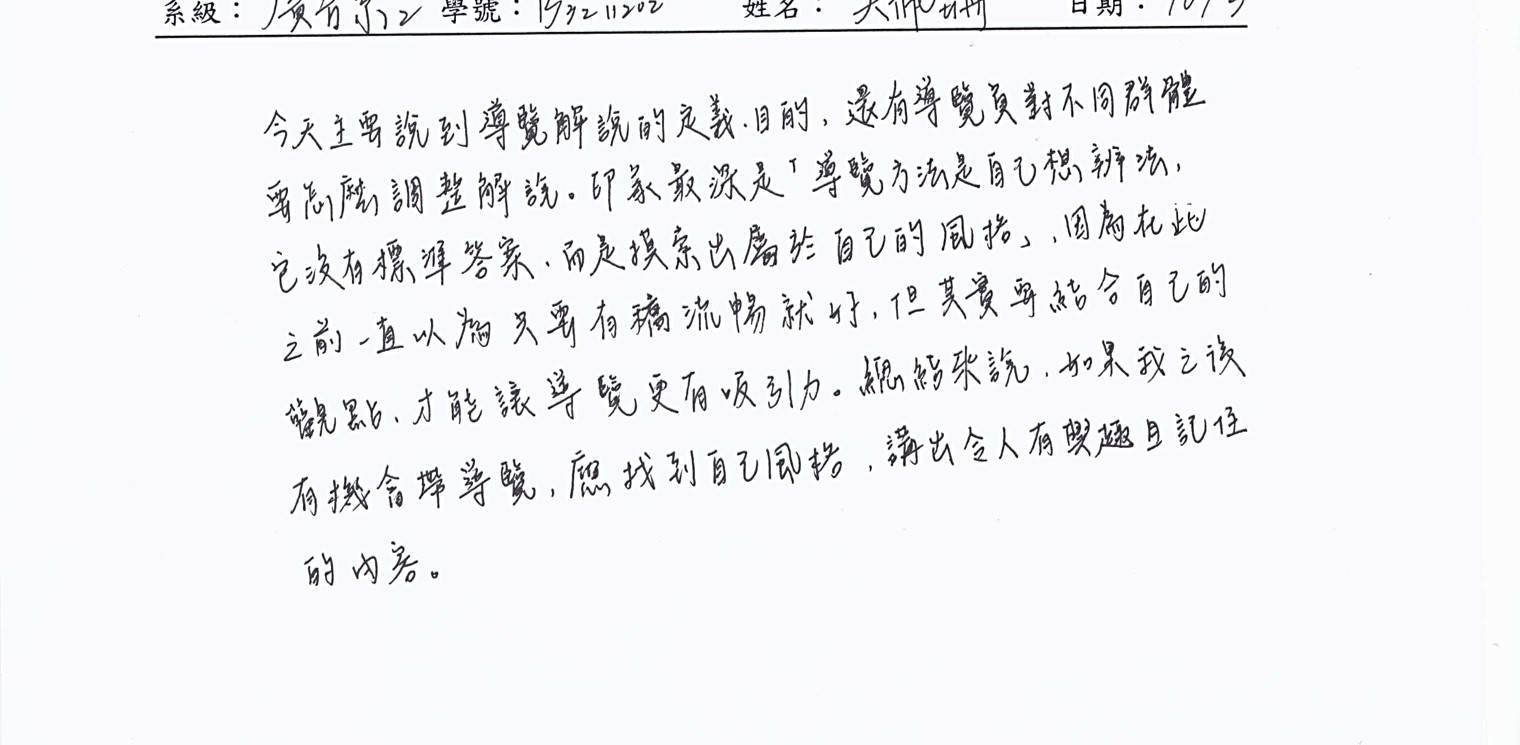 系級： 學號： 姓名： 日期：
今天主要說到導覽解說的定義、目的，還有導覽員對不同群體
要怎麼調整解說。印象最深是「導覽方法是自己想辦法，
它沒有標準答案、而是摸索出屬於自己的風格」，因為在此
之前一直以為只要有稿流暢就好，但其實要結合自己的
觀點、才能讓導覽更有吸引力。總結來說，如果我之後
有機會帶導覽，應找到自己風格，講出令人有興趣且記住
的內容。